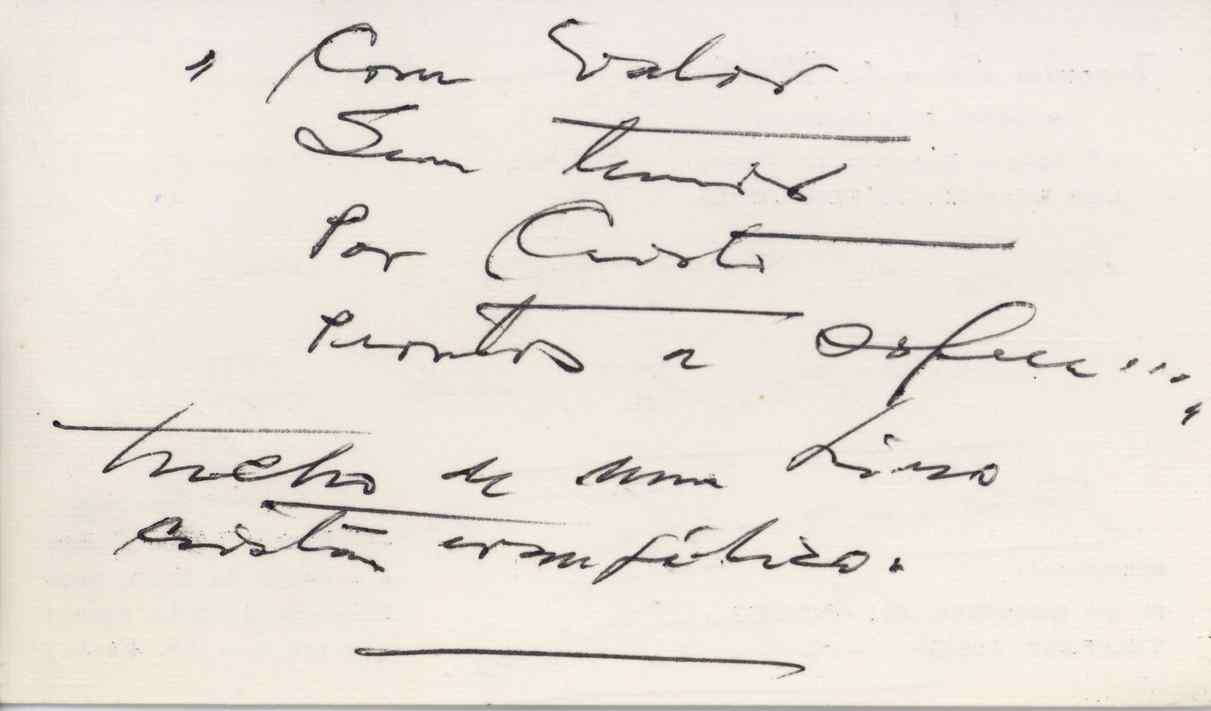 "Com Valor
Sem temor
Por Cristo
Prontos a sofrer..."
trecho de um Hino
cristão evangélico.